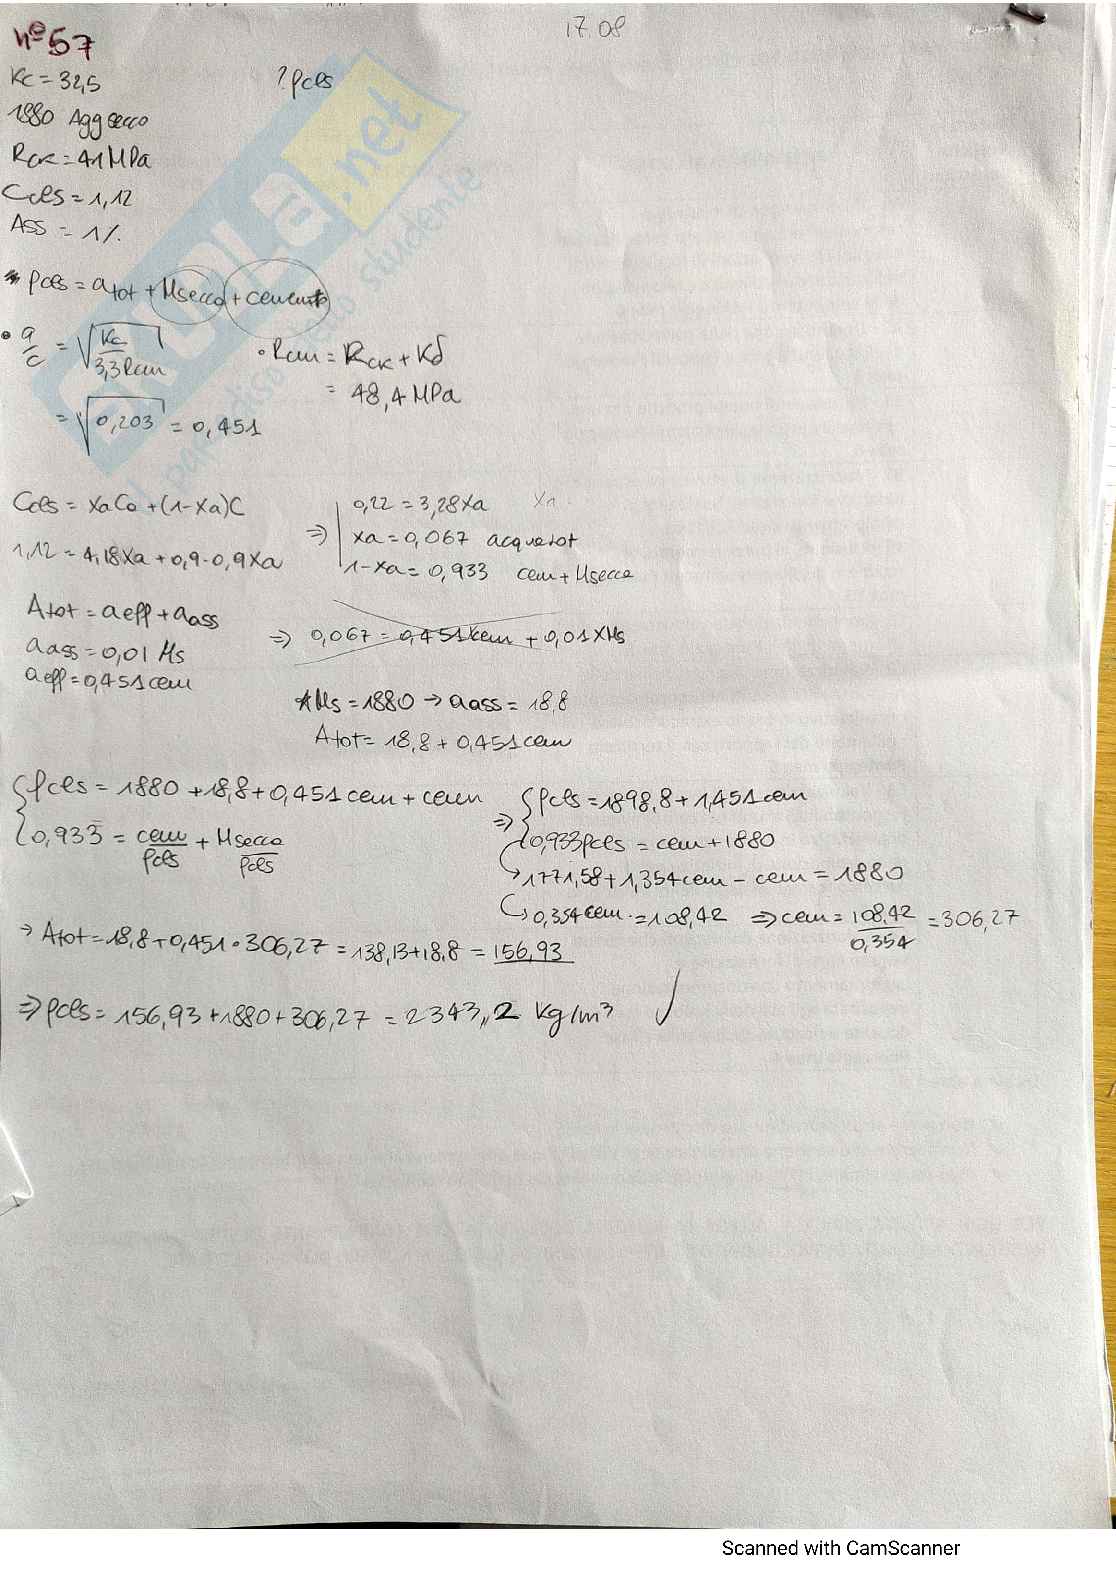 17.08
n°57
Kc = 32,5
? ρcls
1880 Agg secco
Rck = 41 MPa
Ccls = 1,12
Ass = 1%
ρcls = atot + Msecco + cemento
• a/c = √(Kc/3,3Rcm)
• Rcm = Rck + Kδ
= 48,4 MPa
= √0,203 = 0,451
Ccls = XaCa + (1-Xa)C
1,12 = 4,18Xa + 0,9 - 0,9Xa
⇒ 0,22 = 3,28Xa
Xa = 0,067 acqua tot
1-Xa = 0,933 cem + Msecco
Atot = aeff + aass
aass = 0,01 Ms
aeff = 0,451 cem
⇒ 0,067 = 0,451Xcem + 0,01XMs
Ms = 1880 → aass = 18,8
Atot = 18,8 + 0,451 cem
{ρcls = 1880 + 18,8 + 0,451 cem + cem
0,933 = cem/ρcls + Msecco/ρcls
⇒ {ρcls = 1898,8 + 1,451 cem
0,933ρcls = cem + 1880
1771,58 + 1,354 cem - cem = 1880
0,354 cem = 108,42 ⇒ cem = 108,42/0,354 = 306,27
→ Atot = 18,8 + 0,451 • 306,27 = 138,13 + 18,8 = 156,93
⇒ ρcls = 156,93 + 1880 + 306,27 = 2343,2 Kg/m³ ✓
SKUOLA.net
il paradiso dello studente
Scanned with CamScanner